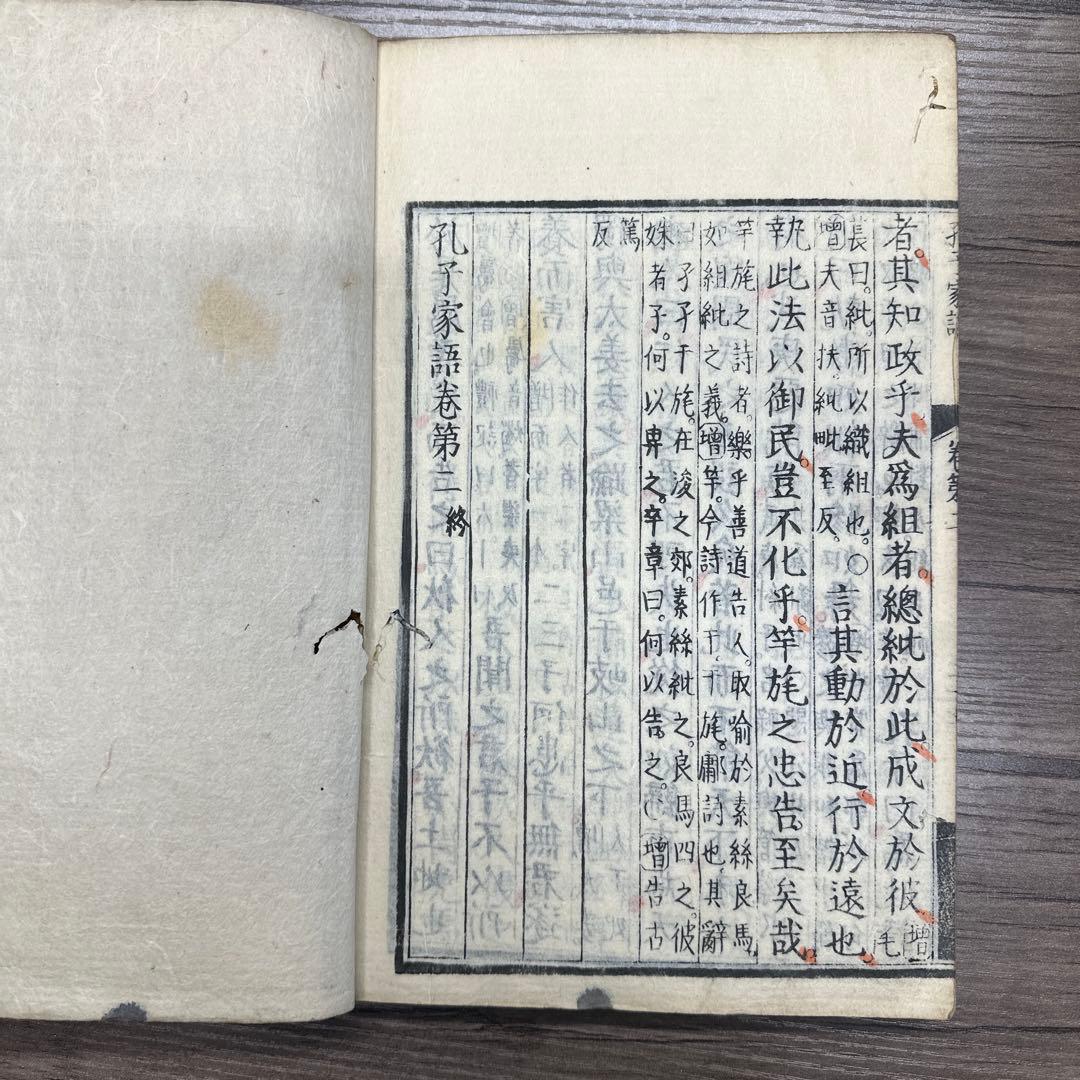 家語
卷第
者。其知政乎。夫爲組者。總紕於此。成文於彼。
增毛
長曰。紕。所以織組也。○
增夫音扶。紕毗至反。
言其動於近。行於遠也。
執此法以御民。豈不化乎。竿旄之忠告。至矣哉。
竿旄之詩者。樂乎善道告人。取喻於素絲良馬
如組紕之義。增竿。今詩作干。干旄。鄘詩也。其辭
曰。孑孑干旄。在浚之郊。素絲紕之。良馬四之。彼
姝者子。何以畀之。卒章曰。何以告之。○增告古
篤
反
孔子家語卷第二 終